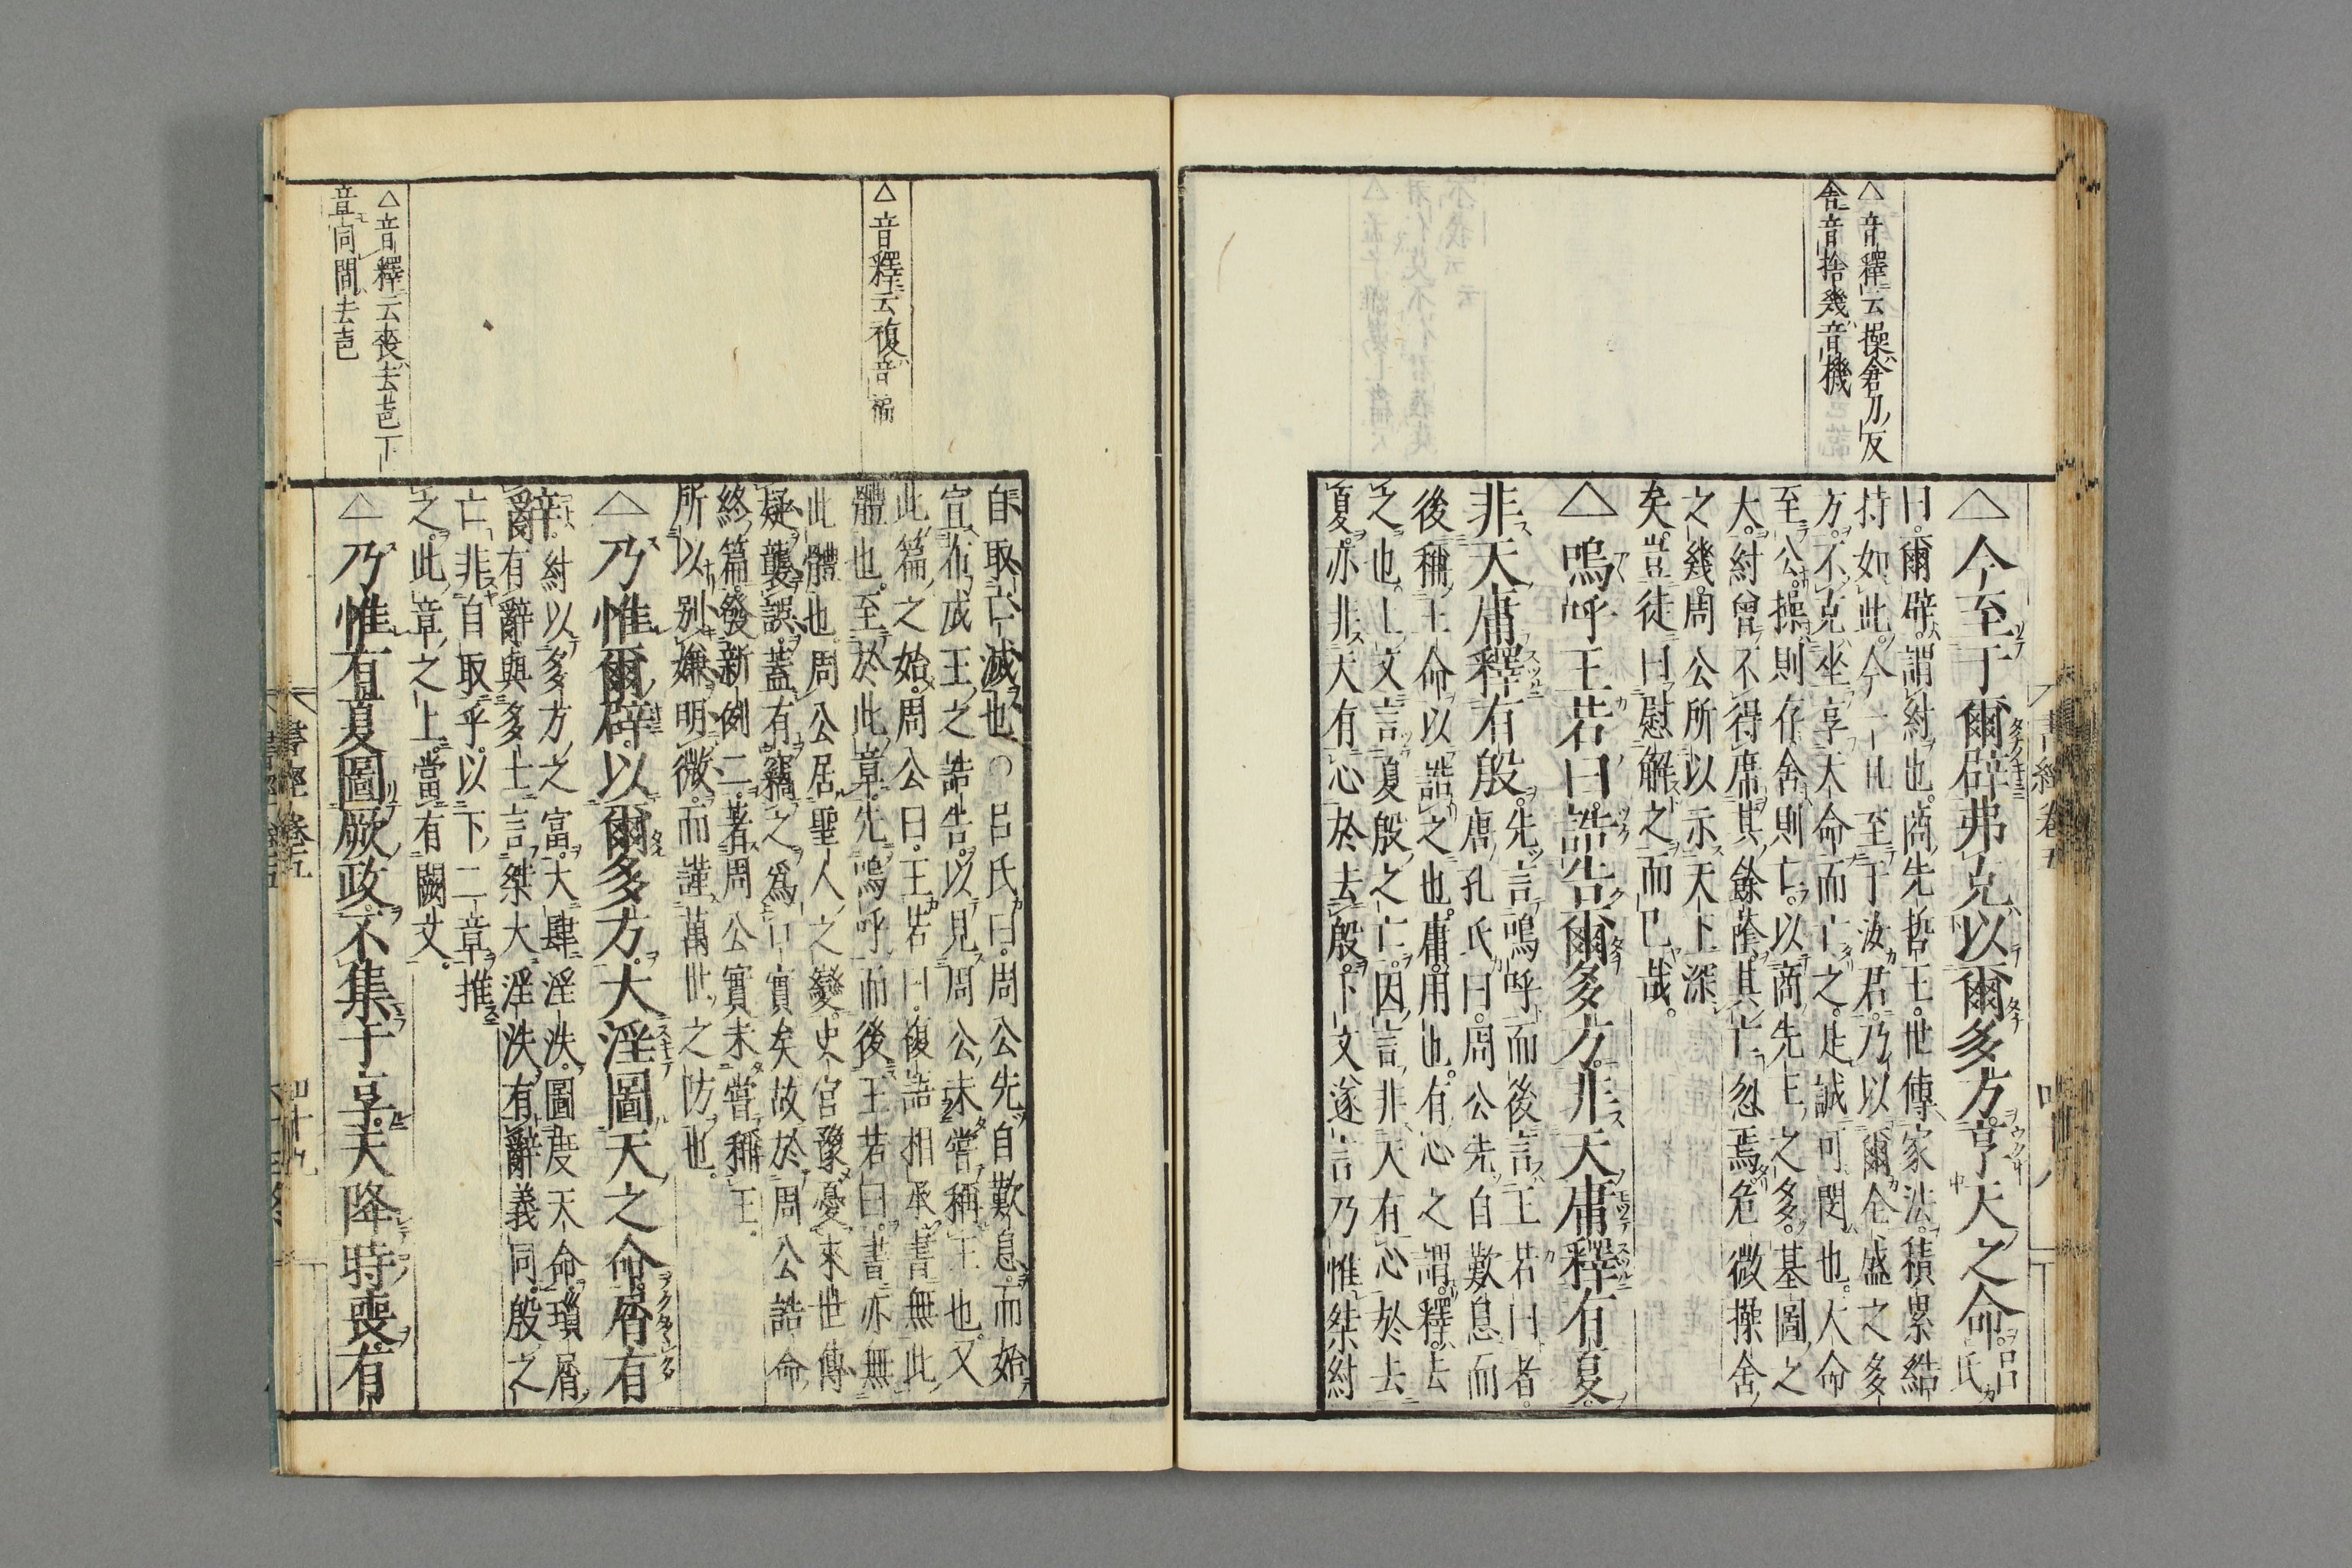 △音釋云操倉刀反
舍音捨幾音機
△今至于爾辟弗克以爾多方享天之命呂氏
曰爾辟謂紂也商先哲王世傳家法積累維
持如此今一旦至于汝君乃以爾全盛之多
方不克坐享天命而亡之是誠可閔也天命
至公操則存舍則亡以商先王之多基圖之
大紂曾不得席其餘蔭其亡忽焉危微操舍
之幾周公所以示天下深
矣豈徒曰慰解之而已哉
△嗚呼王若曰誥告爾多方非天庸釋有夏
非天庸釋有殷先言嗚呼而後言王若曰者
唐孔氏曰周公先自歎息而
後稱王命以誥之也庸用也有心之謂釋去
之也上文言夏殷之亡因言非天有心於去
夏亦非天有心於去殷下文遂言乃惟桀紂
書經卷五
四十八
△音釋云復音福
△音釋云喪去聲下
音同間去聲
自取亡滅也○呂氏曰周公先自歎息而始
宣布成王之誥告以見周公未嘗稱王也又
此篇之始周公曰王若曰複語相承書無此
體也至於此章先嗚呼而後王若曰書亦無
此體也周公居聖人之變史官豫憂來世傳
疑襲誤蓋有竊之爲口實矣故於周公誥命
終篇發新例二著周公實未嘗稱王
所以別嫌明微而謹萬世之防也
△乃惟爾辟以爾多方大淫圖天之命屑有
辭紂以多方之富大肆淫泆圖度天命瑣屑
有辭與多士言桀大淫泆有辭義同殷之
亡非自取乎以下二章推
之此章之上當有闕文
△乃惟有夏圖厥政不集于享天降時喪有
書經卷五
四十九